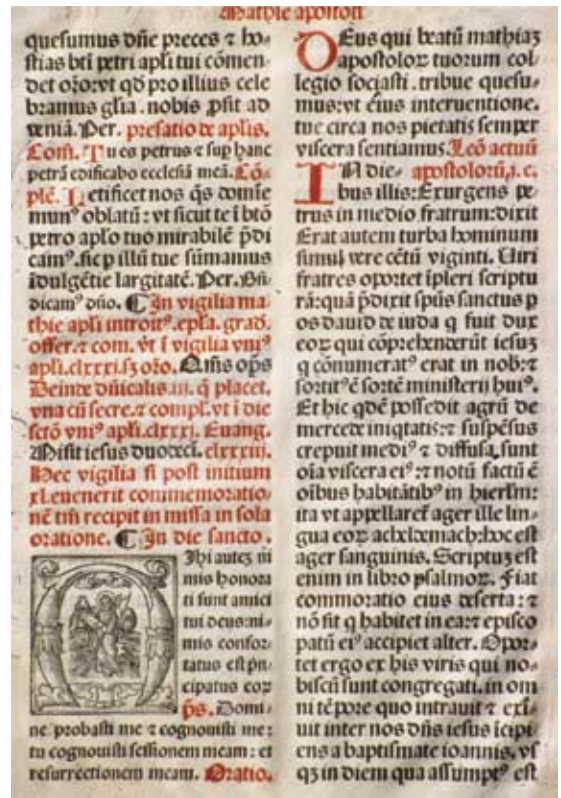 Mathie apostoli
quesumus dñe preces ⁊ ho⸗
stias bti petri apli tui cõmen⸗
det oro: vt qd pro illius cele
bramus glia. nobis ꝓsit ad
veniã. Per. prefatio de aplis.
Com̃. Tu es petrus ⁊ sup hanc
petrã edificabo ecclesiã meã. Cõ⸗
plẽ. Letificet nos q̃s domine
munꝰ oblatũ: vt sicut te ĩ btõ
petro aplo tuo mirabilẽ p̃di
camꝰ. sic ꝑ illũ tue sumamus
ĩdulgẽtie largitatẽ. Per. Bñ⸗
dicamꝰ dño. ¶ In vigilia ma⸗
thie apli introitꝰ. epla. grad.
offer. ⁊ com. vt ĩ vigilia vniꝰ
apli. clxxxi. sꝫ oro. Om̃s op̃s
Deinde dñicalis. in. q̃ placet.
vna cũ secre. ⁊ compl. vt ĩ die
sctõ vniꝰ apli. clxxxj. Euang.
Misit iesus duodecĩ. clxxxiij.
Hec vigilia si post initium
xl. euenerit commemoratio⸗
nẽ tm̃ recipit in missa in sola
oratione. ¶ In die sancto.
MIhi autez ni
mis honora
ti sunt amici
tui deus: ni⸗
mis confor⸗
tatus est prĩ⸗
cipatus eoꝝ
ps. Domi⸗
ne probasti me ⁊ cognouisti me:
tu cognouisti sessionem meam: et
resurrectionem meam. Oratio.
DEus qui beatũ mathiaꝫ
apostoloꝝ tuorum col⸗
legio sociasti. tribue quesu⸗
mus: vt eius interuentione.
tue circa nos pietatis semper
viscera sentiamus. Leõ actuũ
IN die⸗ apostolorũ. j. c.
bus illis: Exurgens pe⸗
trus in medio fratrum: dixit
Erat autem turba hominum
simul vere cẽtũ viginti. Uiri
fratres oportet ĩpleri scriptu
rã: quã p̃dixit spũs sanctus ꝑ
os dauid de iuda q̃ fuit dux
eoꝝ qui cõprehenderũt iesuꝫ
q̃ cõnumeratꝰ erat in nob̃: ⁊
sortitꝰ ẽ sortẽ ministerij huiꝰ.
Et hic qdẽ possedit agrũ de
mercede iniqtatis: ⁊ suspẽsus
crepuit mediꝰ ⁊ diffusa sunt
oĩa viscera eiꝰ: ⁊ notũ factũ ẽ
oĩbus habitãtibꝰ in hierlm̃:
ita vt appellaret᷑ ager ille lin⸗
gua eoꝝ acheldemach: hoc est
ager sanguinis. Scriptuꝫ est
enim in libro psalmoꝝ. Fiat
commoratio eius deserta: ⁊
nõ sit q̃ habitet in ea: ⁊ episco
patũ eiꝰ accipiet alter. Opor⸗
tet ergo ex his viris qui no⸗
biscũ sunt congregati. in om
ni tẽpore quo intrauit ⁊ exĩ⸗
uit inter nos dñs iesus ĩcipi⸗
ens a baptismate ioannis. vs
qꝫ in diem qua assumptꝰ est